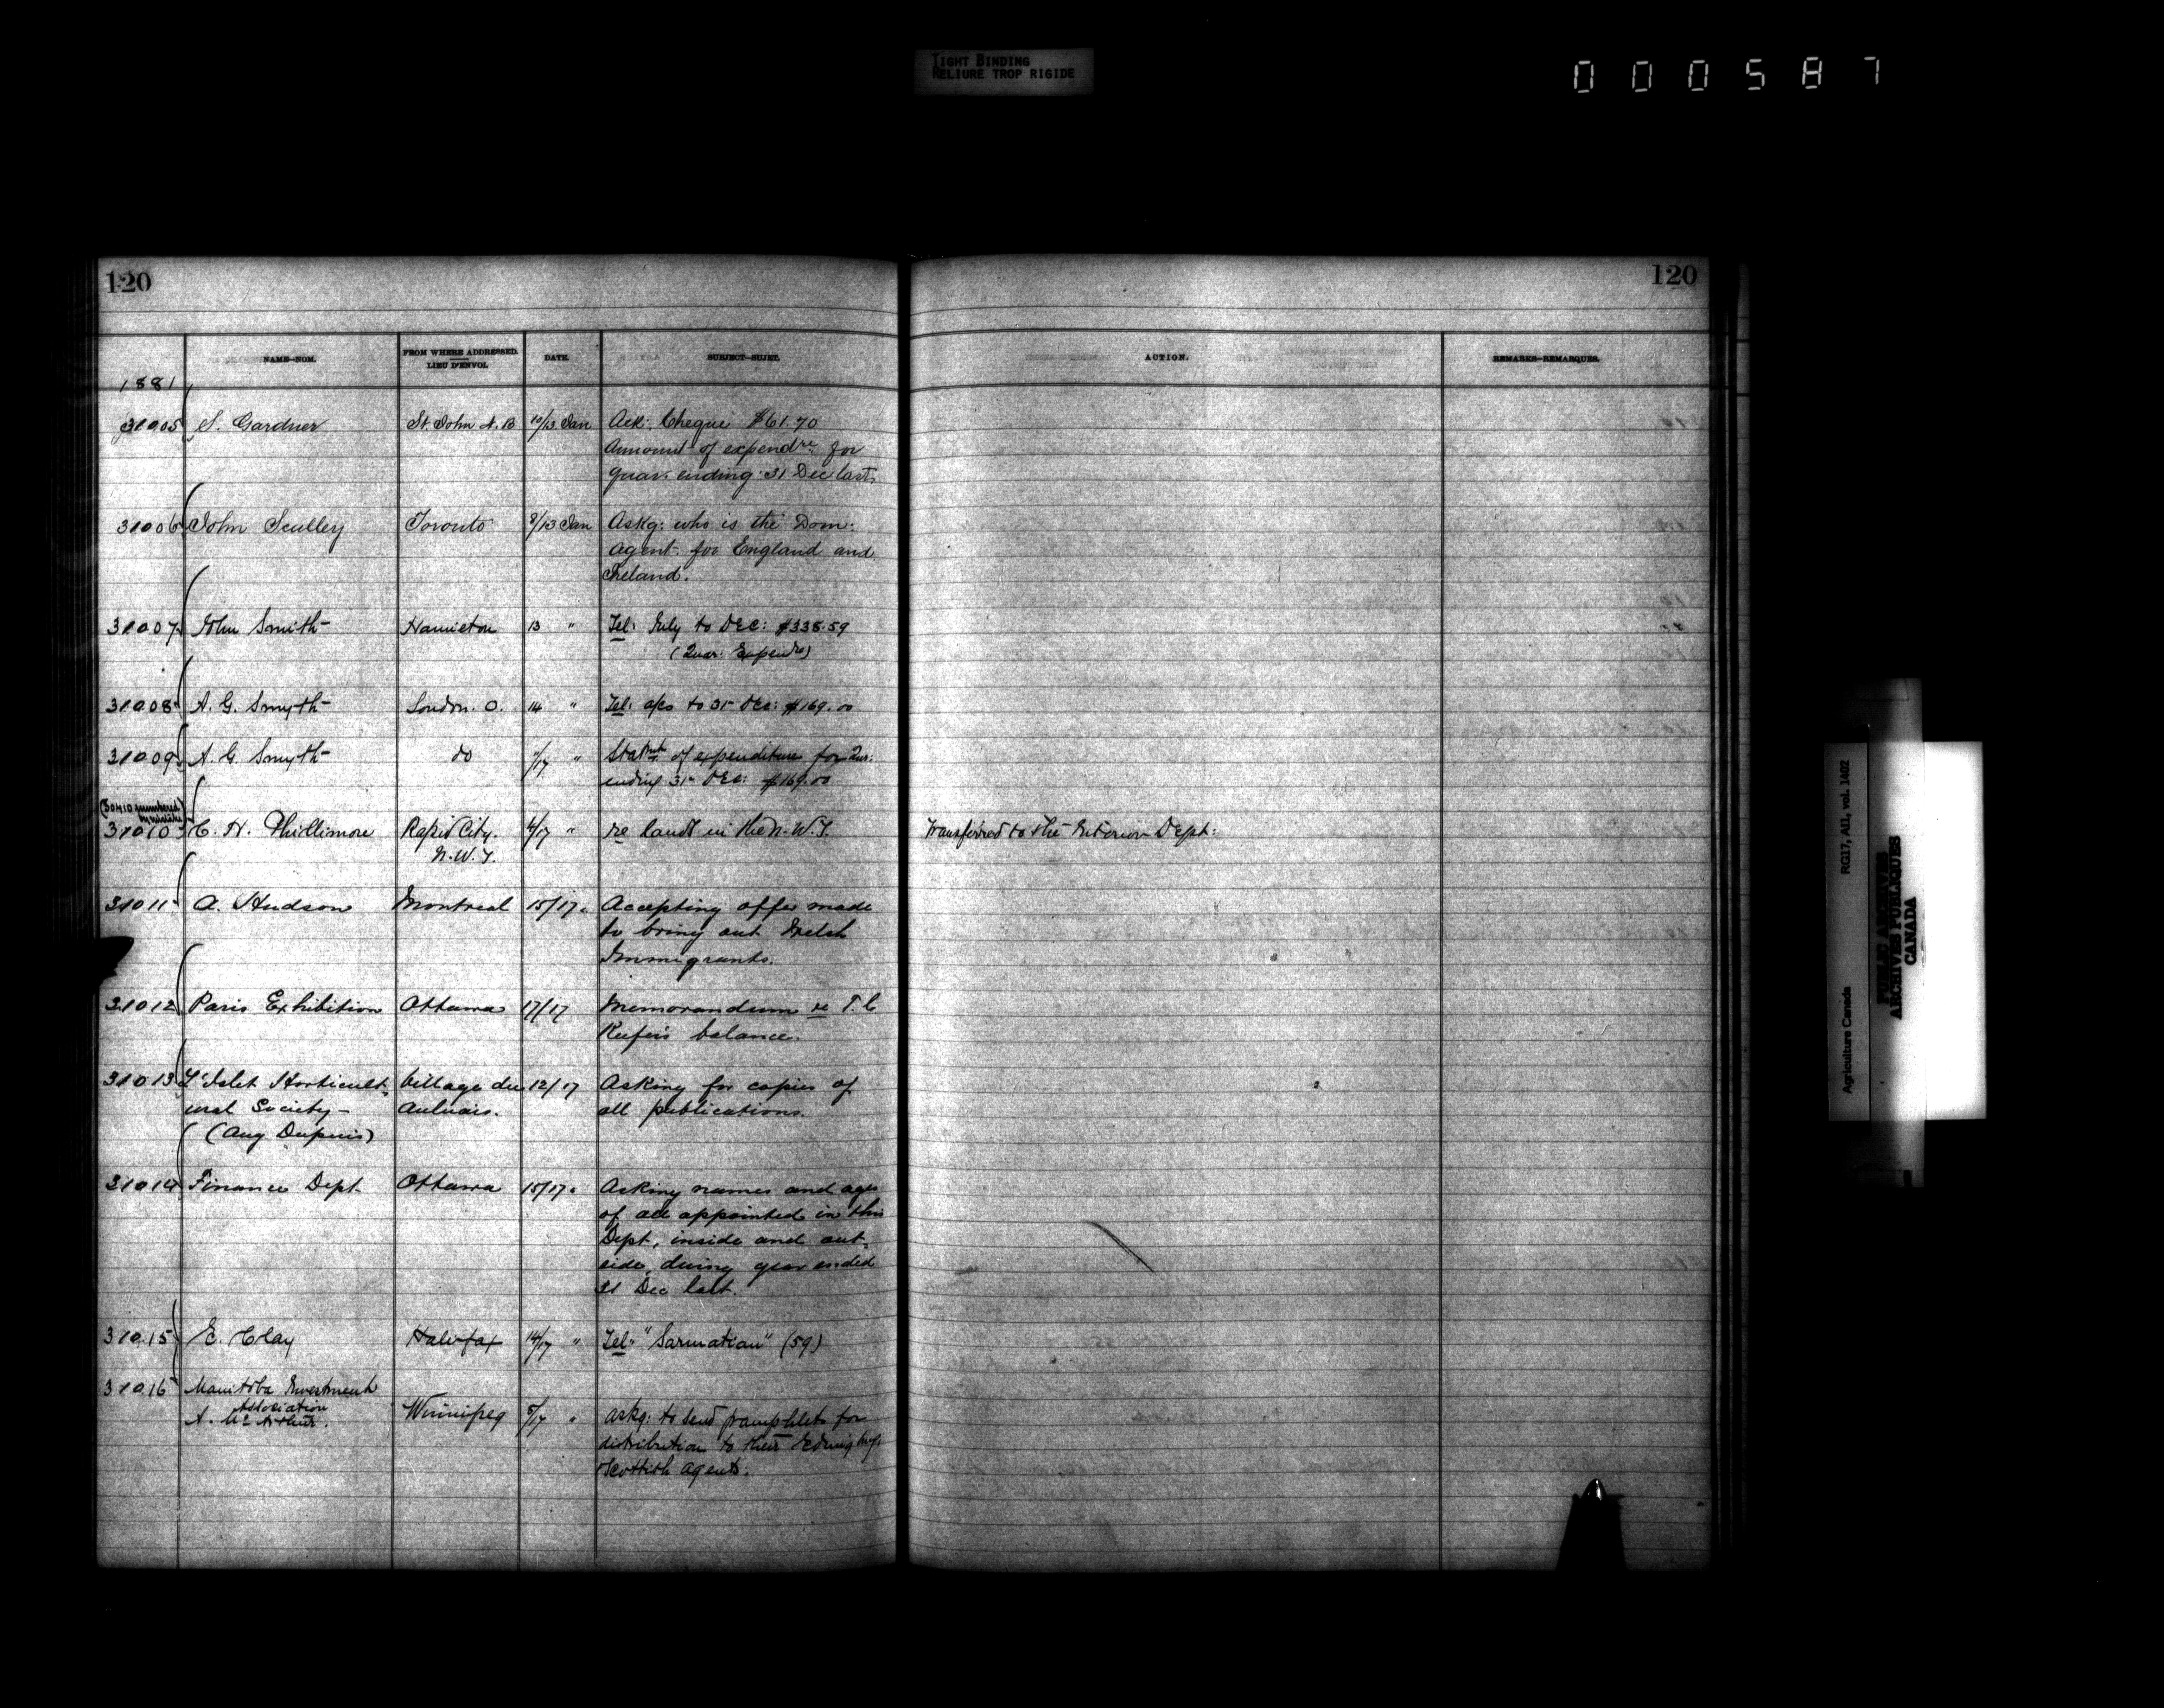 TIGHT BINDING
RELIURE TROP RIGIDE
000587
120
120
NAME—NOM.
FROM WHERE ADDRESSED.
LIEU D'ENVOI.
DATE.
SUBJECT—SUJET.
ACTION.
REMARKS—REMARQUES.
1881
31005 S. Gardner St John N.B 10/13 Jan Ack: Cheque $61.70
Amount of expendre: for
quar. ending 31 Dec last.
31006 John Sculley Toronto 8/13 Jan Askg: who is the Dom:
Agent for England and
Ireland.
31007 John Smith Hamilton 13 " Tel: July to Dec: $338.59
(Quar: Expendre)
31008 A. G. Smyth London. O. 14 " Tel: a/cs to 31 Dec: $169.00
31009 A. G. Smyth do /17 " Statmt of expenditure for Qur:
ending 31st Dec: $169.00
(30410 numbered
by mistake)
31010 C. H. Phillimore Rapid City. 4/17 " re lands in the N.W.T. Transferred to the Interior Dept:
N.W.T.
31011 A. Hudson Montreal 15/17 " Accepting offer made
to bring out Welsh
Immigrants.
31012 Paris Exhibition Ottawa 17/17 Memorandum re T.C
Keefer's balance.
31013 L'Islet Horticult- Village des 12/17 Asking for copies of
ural Society — Aulnais. all publications.
(Aug Dupuis)
31014 Finance Dept Ottawa 15/17 " Asking names and ages
of all appointed in this
Dept, inside and out-
side, during year ended
31 Dec last.
31015 E. Clay Halifax 14/17 " Tel: "Sarmatian" (59)
31016 Manitoba Investment
Association
A. McArthur. Winnipeg 5/17 " askg: to send pamphlets for
distribution to their
Scottish Agents.
Agriculture Canada RG17, AII, vol. 1402
PUBLIC ARCHIVES
ARCHIVES PUBLIQUES
CANADA